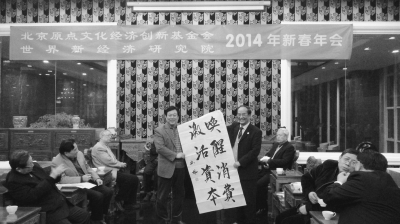 北京原点文化经济创新基金会
世界新经济研究院
2014年新春年会
唤醒消费
激活资本